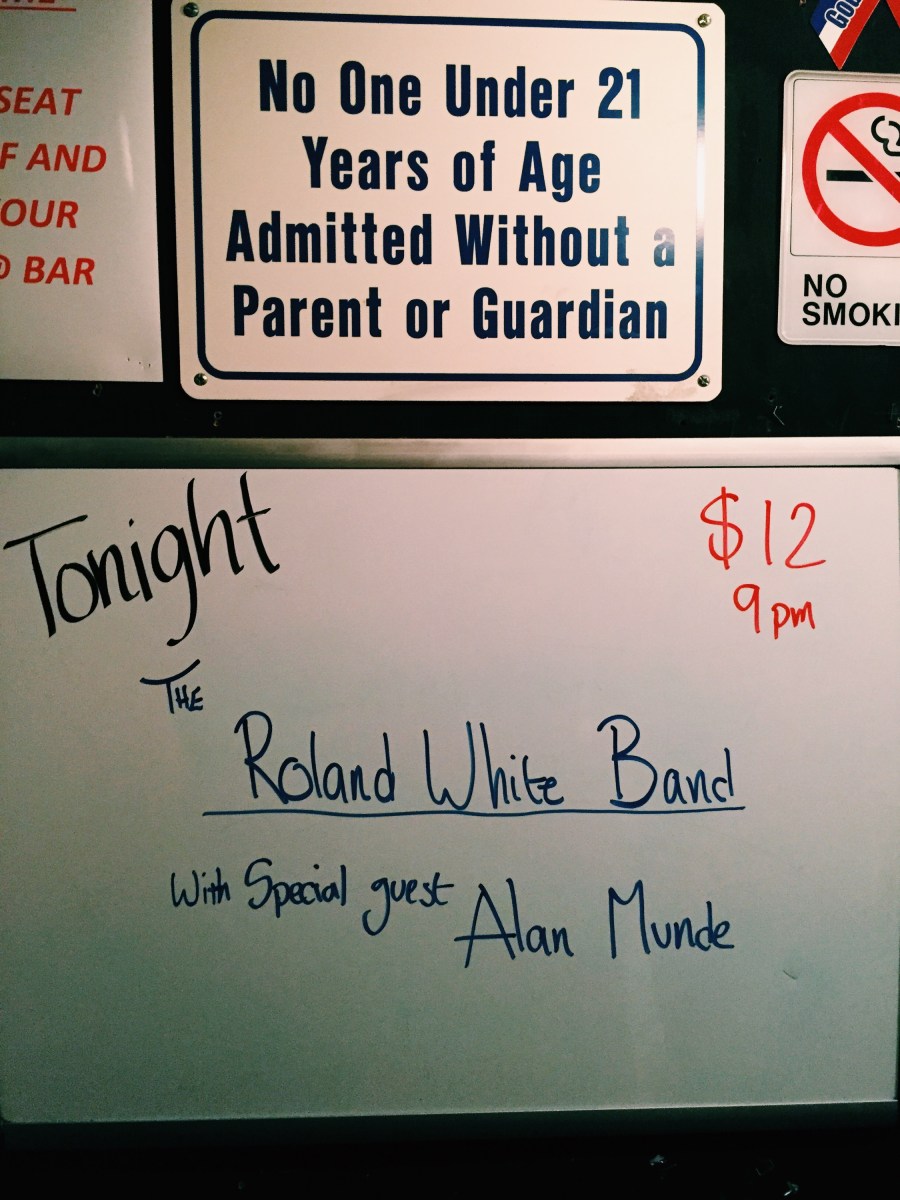 SEAT
F AND
OUR
BAR
No One Under 21
Years of Age
Admitted Without a
Parent or Guardian
NO
SMOKI
Tonight
$12
9pm
THE
Roland White Band
With Special guest Alan Munde